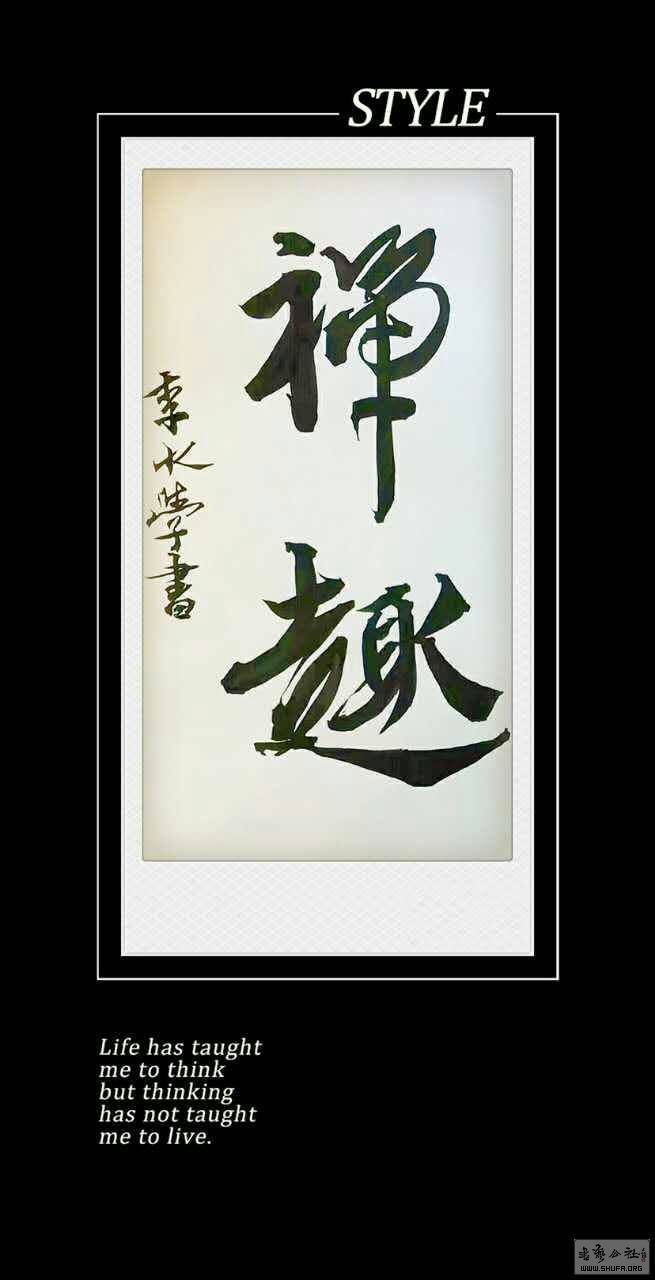 STYLE
禪趣
季水學書
Life has taught
me to think
but thinking
has not taught
me to live.
書藝公社
WWW.SHUFA.ORG